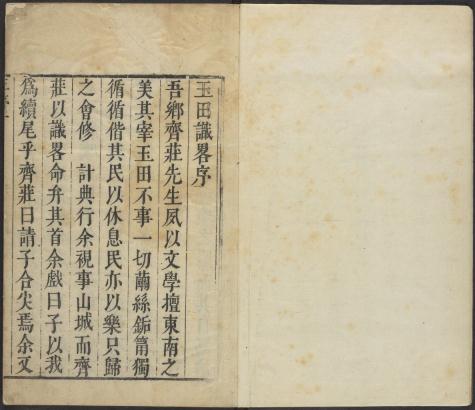 玉田識畧序
吾鄉齊莊先生夙以文學擅東南之
美其宰玉田不事一切繭絲鉐筩獨
循循偕其民以休息民亦以樂只歸
之會修 計典行余視事山城而齊
莊以識畧命弁其首余戲曰子以我
爲續尾乎齊莊曰請子合尖焉余又